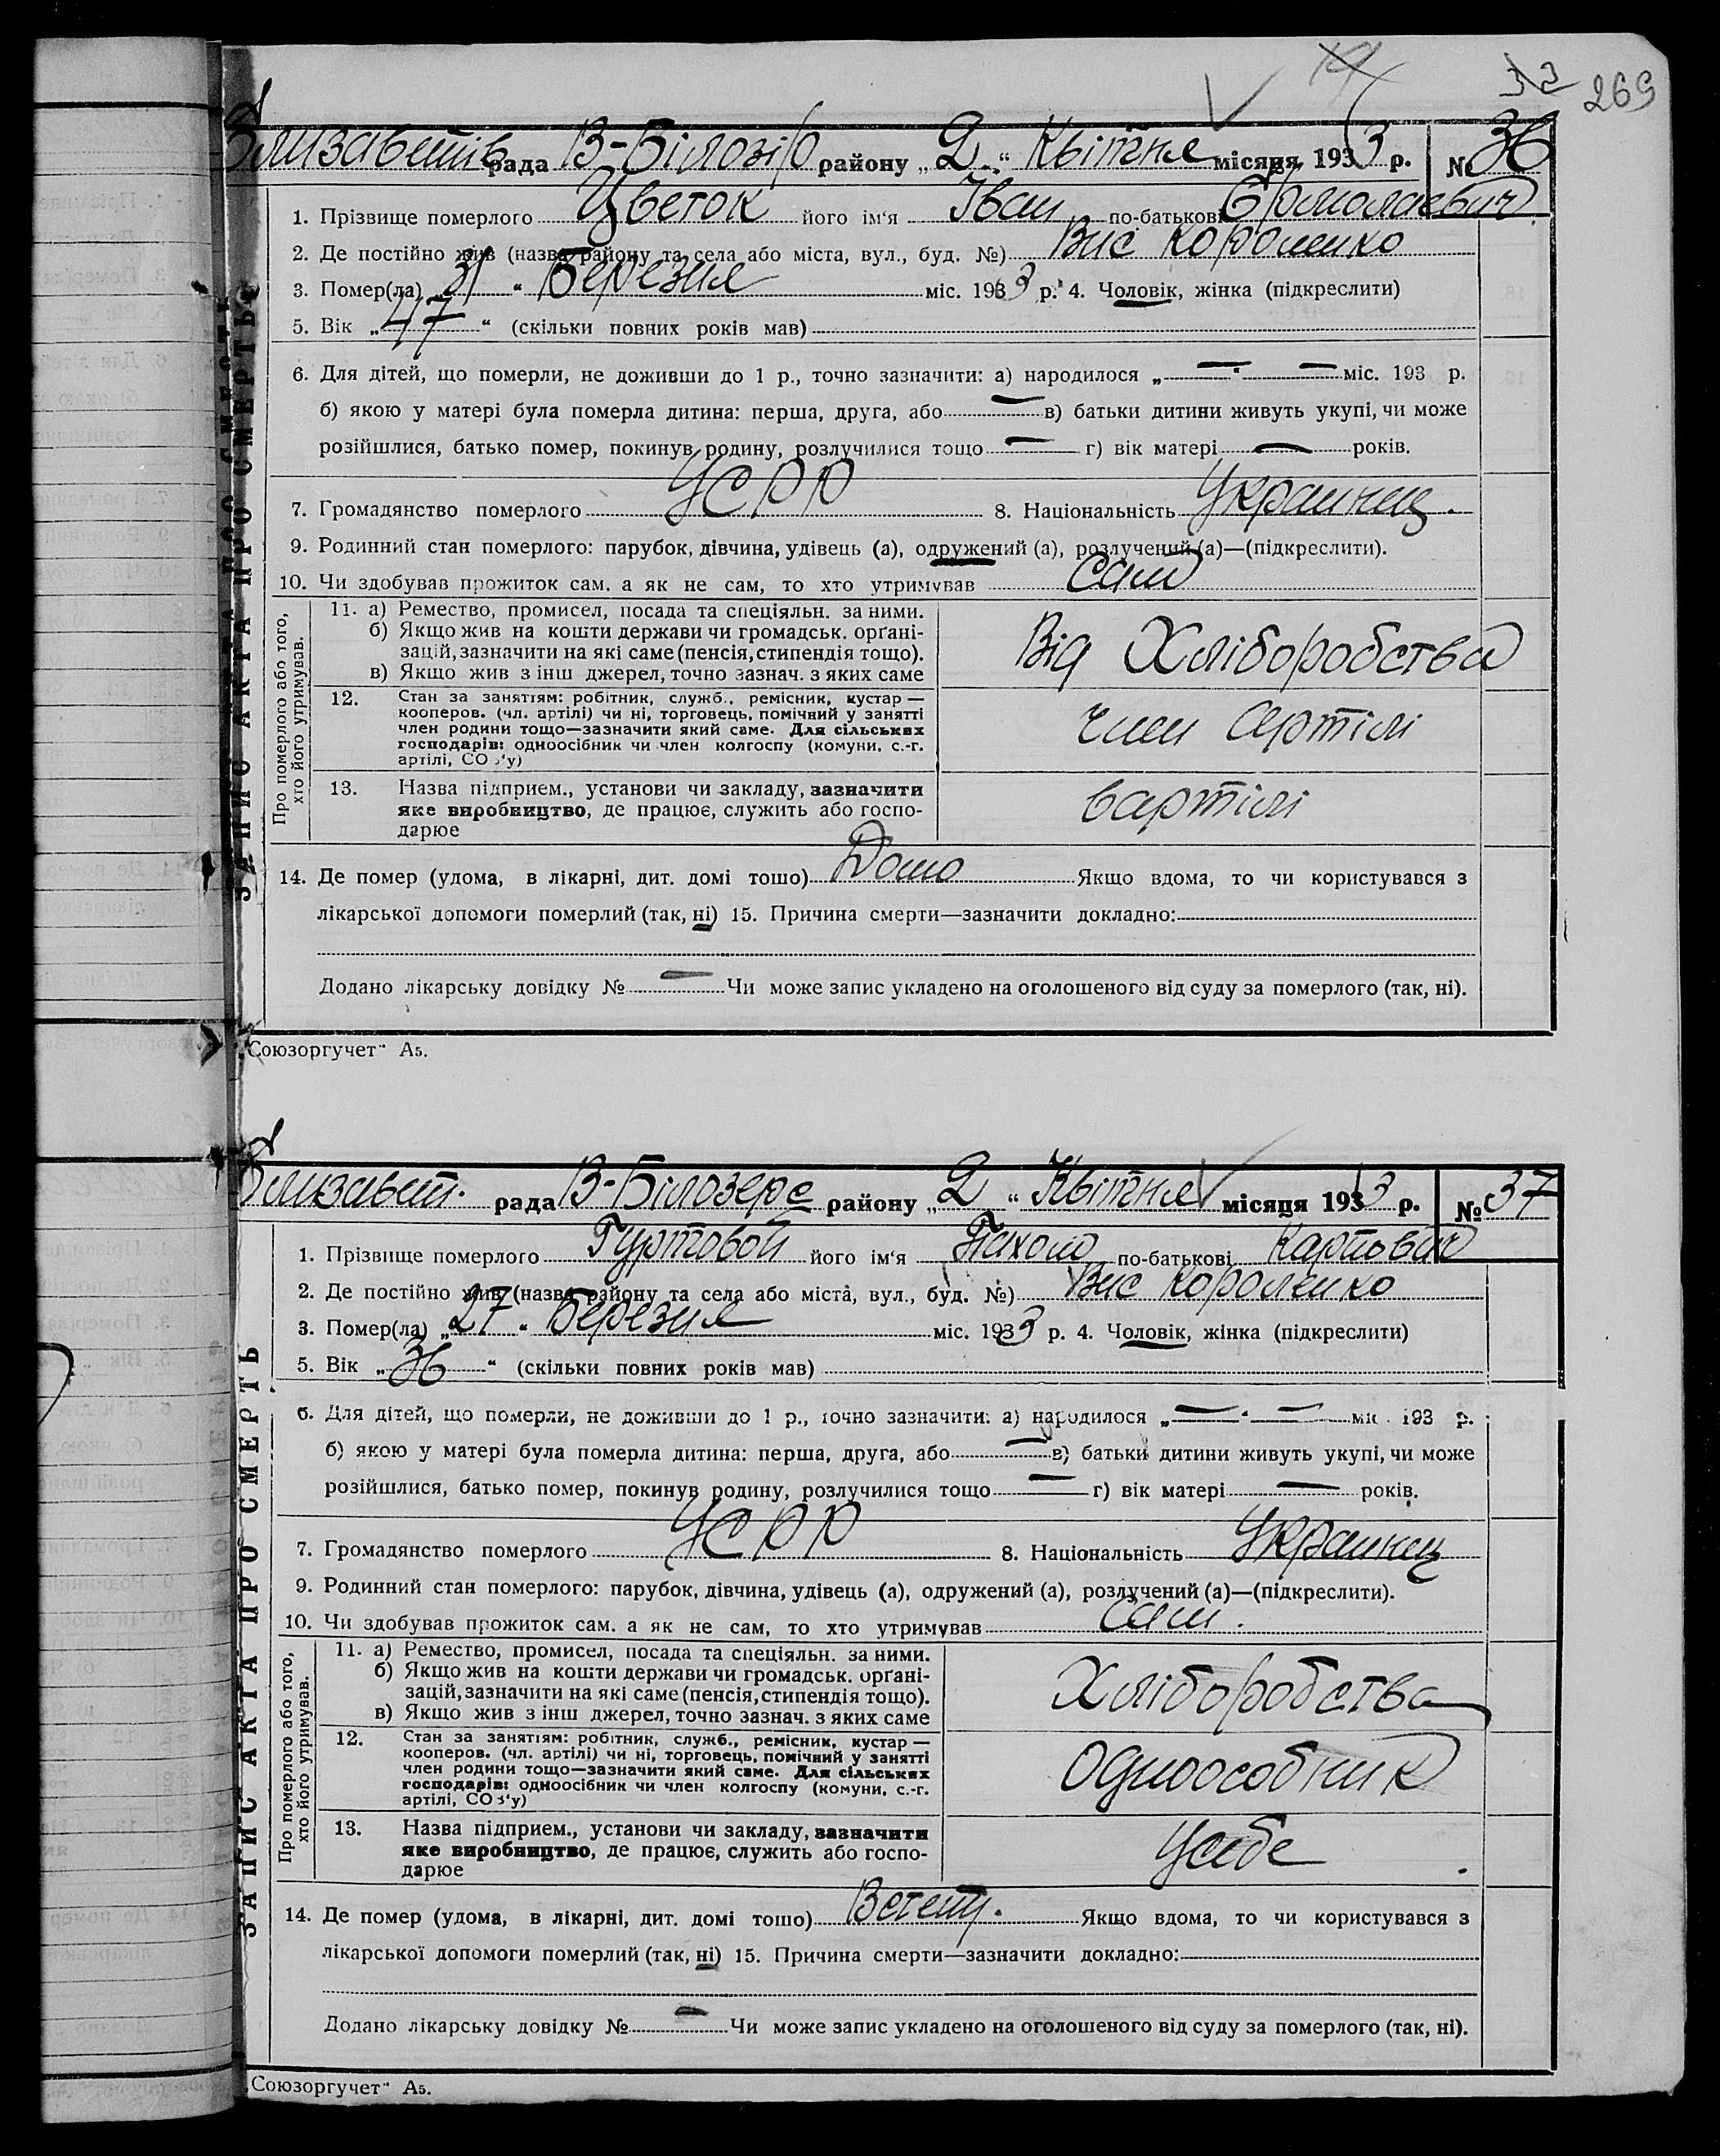 32 269
Єлизаветів рада В-Білозір району „2“ Квітня місяця 1933 р. № 36
ЗАПИС АКТА ПРО СМЕРТЬ
1. Прізвище померлого Цветок його ім'я Іван по-батькові Єрмолаевич
2. Де постійно жив (назва району та села або міста, вул., буд. №) Вис Короленко
3. Помер(ла) „31“ Березня міс. 1933 р. 4. Чоловік, жінка (підкреслити)
5. Вік „47“ (скільки повних років мав)
6. Для дітей, що померли, не доживши до 1 р., точно зазначити: а) народилося „—“ — міс. 193 р.
б) якою у матері була померла дитина: перша, друга, або — в) батьки дитини живуть укупі, чи може
розійшлися, батько помер, покинув родину, розлучилися тощо — г) вік матері — років.
7. Громадянство померлого УСРР 8. Національність Украинец.
9. Родинний стан померлого: парубок, дівчина, удівець (а), одружений (а), розлучений (а)—(підкреслити).
10. Чи здобував прожиток сам. а як не сам, то хто утримував Сам
Про померлого або того, хто його утримував.
11. а) Ремество, промисел, посада та спеціяльн. за ними.
б) Якщо жив на кошти держави чи громадськ. орґані-
зацій, зазначити на які саме (пенсія, стипендія тощо).
в) Якщо жив з інш джерел, точно зазнач. з яких саме
Від Хліборобства
12. Стан за занятіям: робітник, служб., ремісник, кустар —
кооперов. (чл. артілі) чи ні, торговець, помічний у занятті
член родини тощо—зазначити який саме. Для сільських
господарів: одноосібник чи член колгоспу (комуни, с.-г.
артілі, СОЗ'у)
член Артілі
13. Назва підприєм., установи чи закладу, зазначити
яке виробництво, де працює, служить або госпо-
дарює
вартілі
14. Де помер (удома, в лікарні, дит. домі тощо) Дома Якщо вдома, то чи користувався з
лікарської допомоги померлий (так, ні) 15. Причина смерти—зазначити докладно:
Додано лікарську довідку № — Чи може запис укладено на оголошеного від суду за померлого (так, ні).
„Союзоргучет“ А5.
Єлизавет. рада В-Білозерс району „2“ Квітня місяця 1933 р. № 37
ЗАПИС АКТА ПРО СМЕРТЬ
1. Прізвище померлого Гуртовой його ім'я Пахом по-батькові Карпович
2. Де постійно жив (назва району та села або міста, вул., буд. №) Вис Короленко
3. Помер(ла) „27“ Березня міс. 1933 р. 4. Чоловік, жінка (підкреслити)
5. Вік „36“ (скільки повних років мав)
6. Для дітей, що померли, не доживши до 1 р., точно зазначити: а) народилося „—“ — міс. 193 р.
б) якою у матері була померла дитина: перша, друга, або — в) батьки дитини живуть укупі, чи може
розійшлися, батько помер, покинув родину, розлучилися тощо — г) вік матері — років.
7. Громадянство померлого УСРР 8. Національність Украинец
9. Родинний стан померлого: парубок, дівчина, удівець (а), одружений (а), розлучений (а)—(підкреслити).
10. Чи здобував прожиток сам. а як не сам, то хто утримував сам.
Про померлого або того, хто його утримував.
11. а) Ремество, промисел, посада та спеціяльн. за ними.
б) Якщо жив на кошти держави чи громадськ. орґані-
зацій, зазначити на які саме (пенсія, стипендія тощо).
в) Якщо жив з інш джерел, точно зазнач. з яких саме
Хліборобства
12. Стан за занятіям: робітник, служб., ремісник, кустар —
кооперов. (чл. артілі) чи ні, торговець, помічний у занятті
член родини тощо—зазначити який саме. Для сільських
господарів: одноосібник чи член колгоспу (комуни, с.-г.
артілі, СОЗ'у)
Одноособник
13. Назва підприєм., установи чи закладу, зазначити
яке виробництво, де працює, служить або госпо-
дарює
Усебе
14. Де помер (удома, в лікарні, дит. домі тощо) Встепу. Якщо вдома, то чи користувався з
лікарської допомоги померлий (так, ні) 15. Причина смерти—зазначити докладно:
Додано лікарську довідку № — Чи може запис укладено на оголошеного від суду за померлого (так, ні).
„Союзоргучет“ А5.